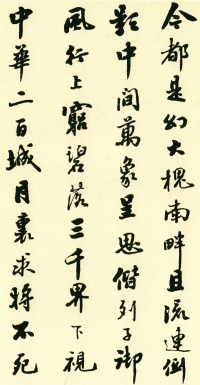 今都是幻大槐南畔且流連倒
影中間萬象呈思偕列子御
風行上窮碧落三千界下視
中華二百城月裏求將不死